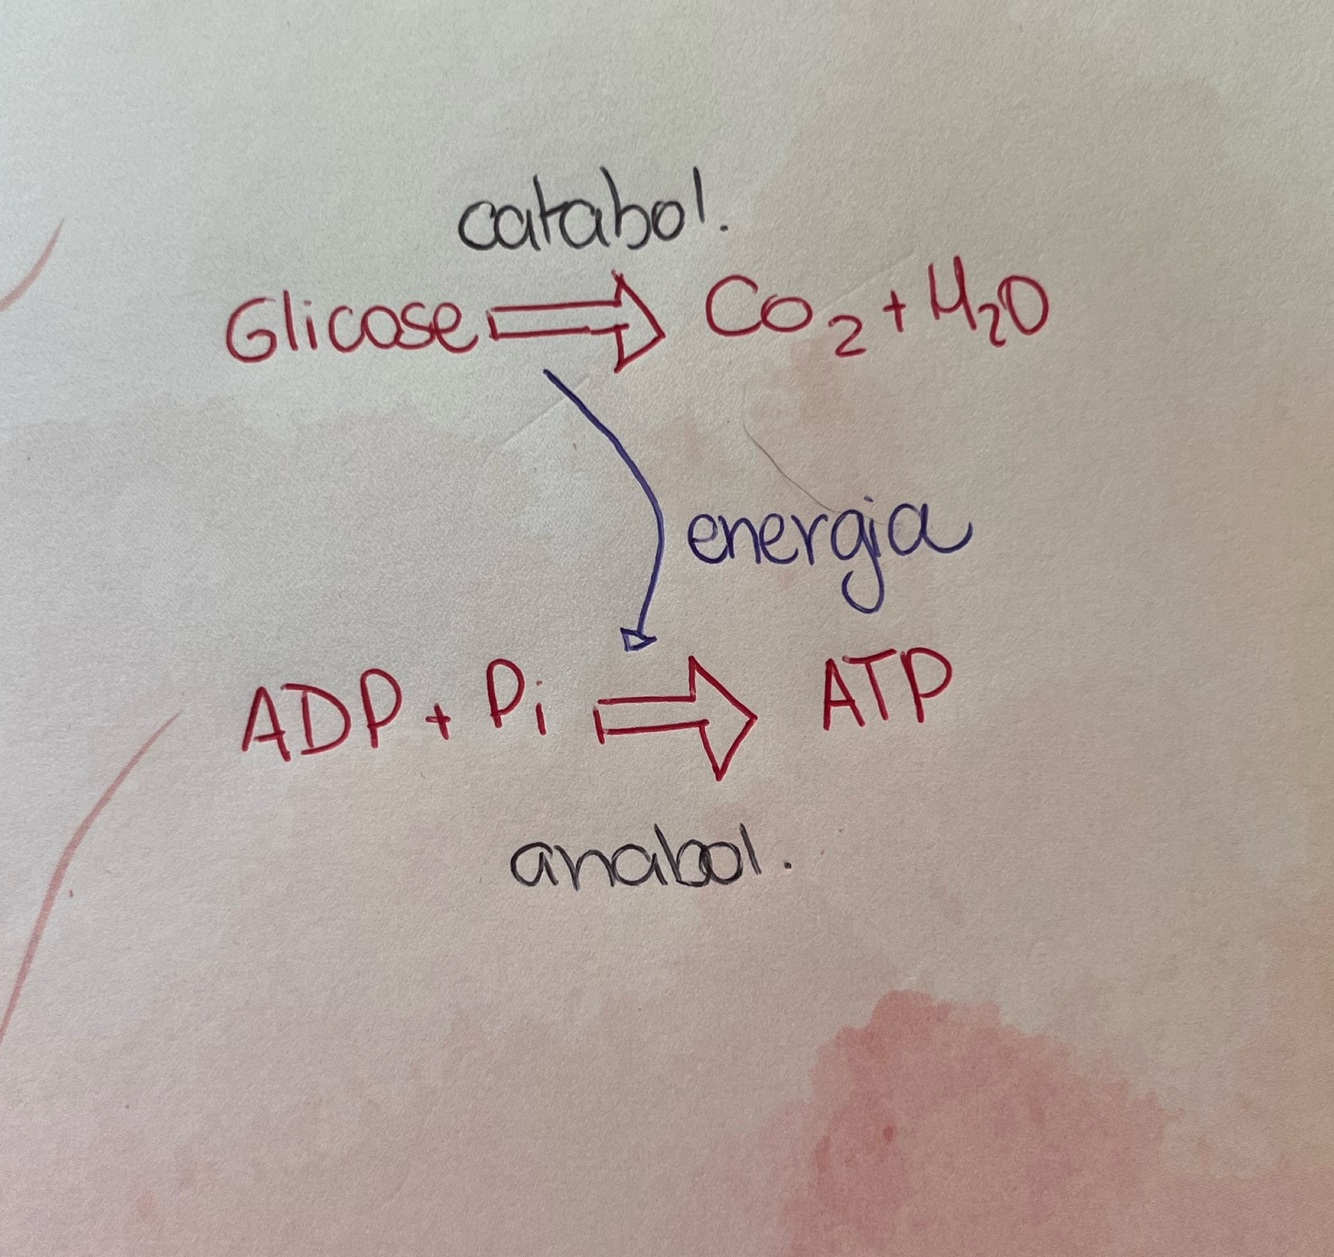 catabol.
Glicose ⇒ Co₂ + H₂O
energia
ADP + Pi ⇒ ATP
anabol.